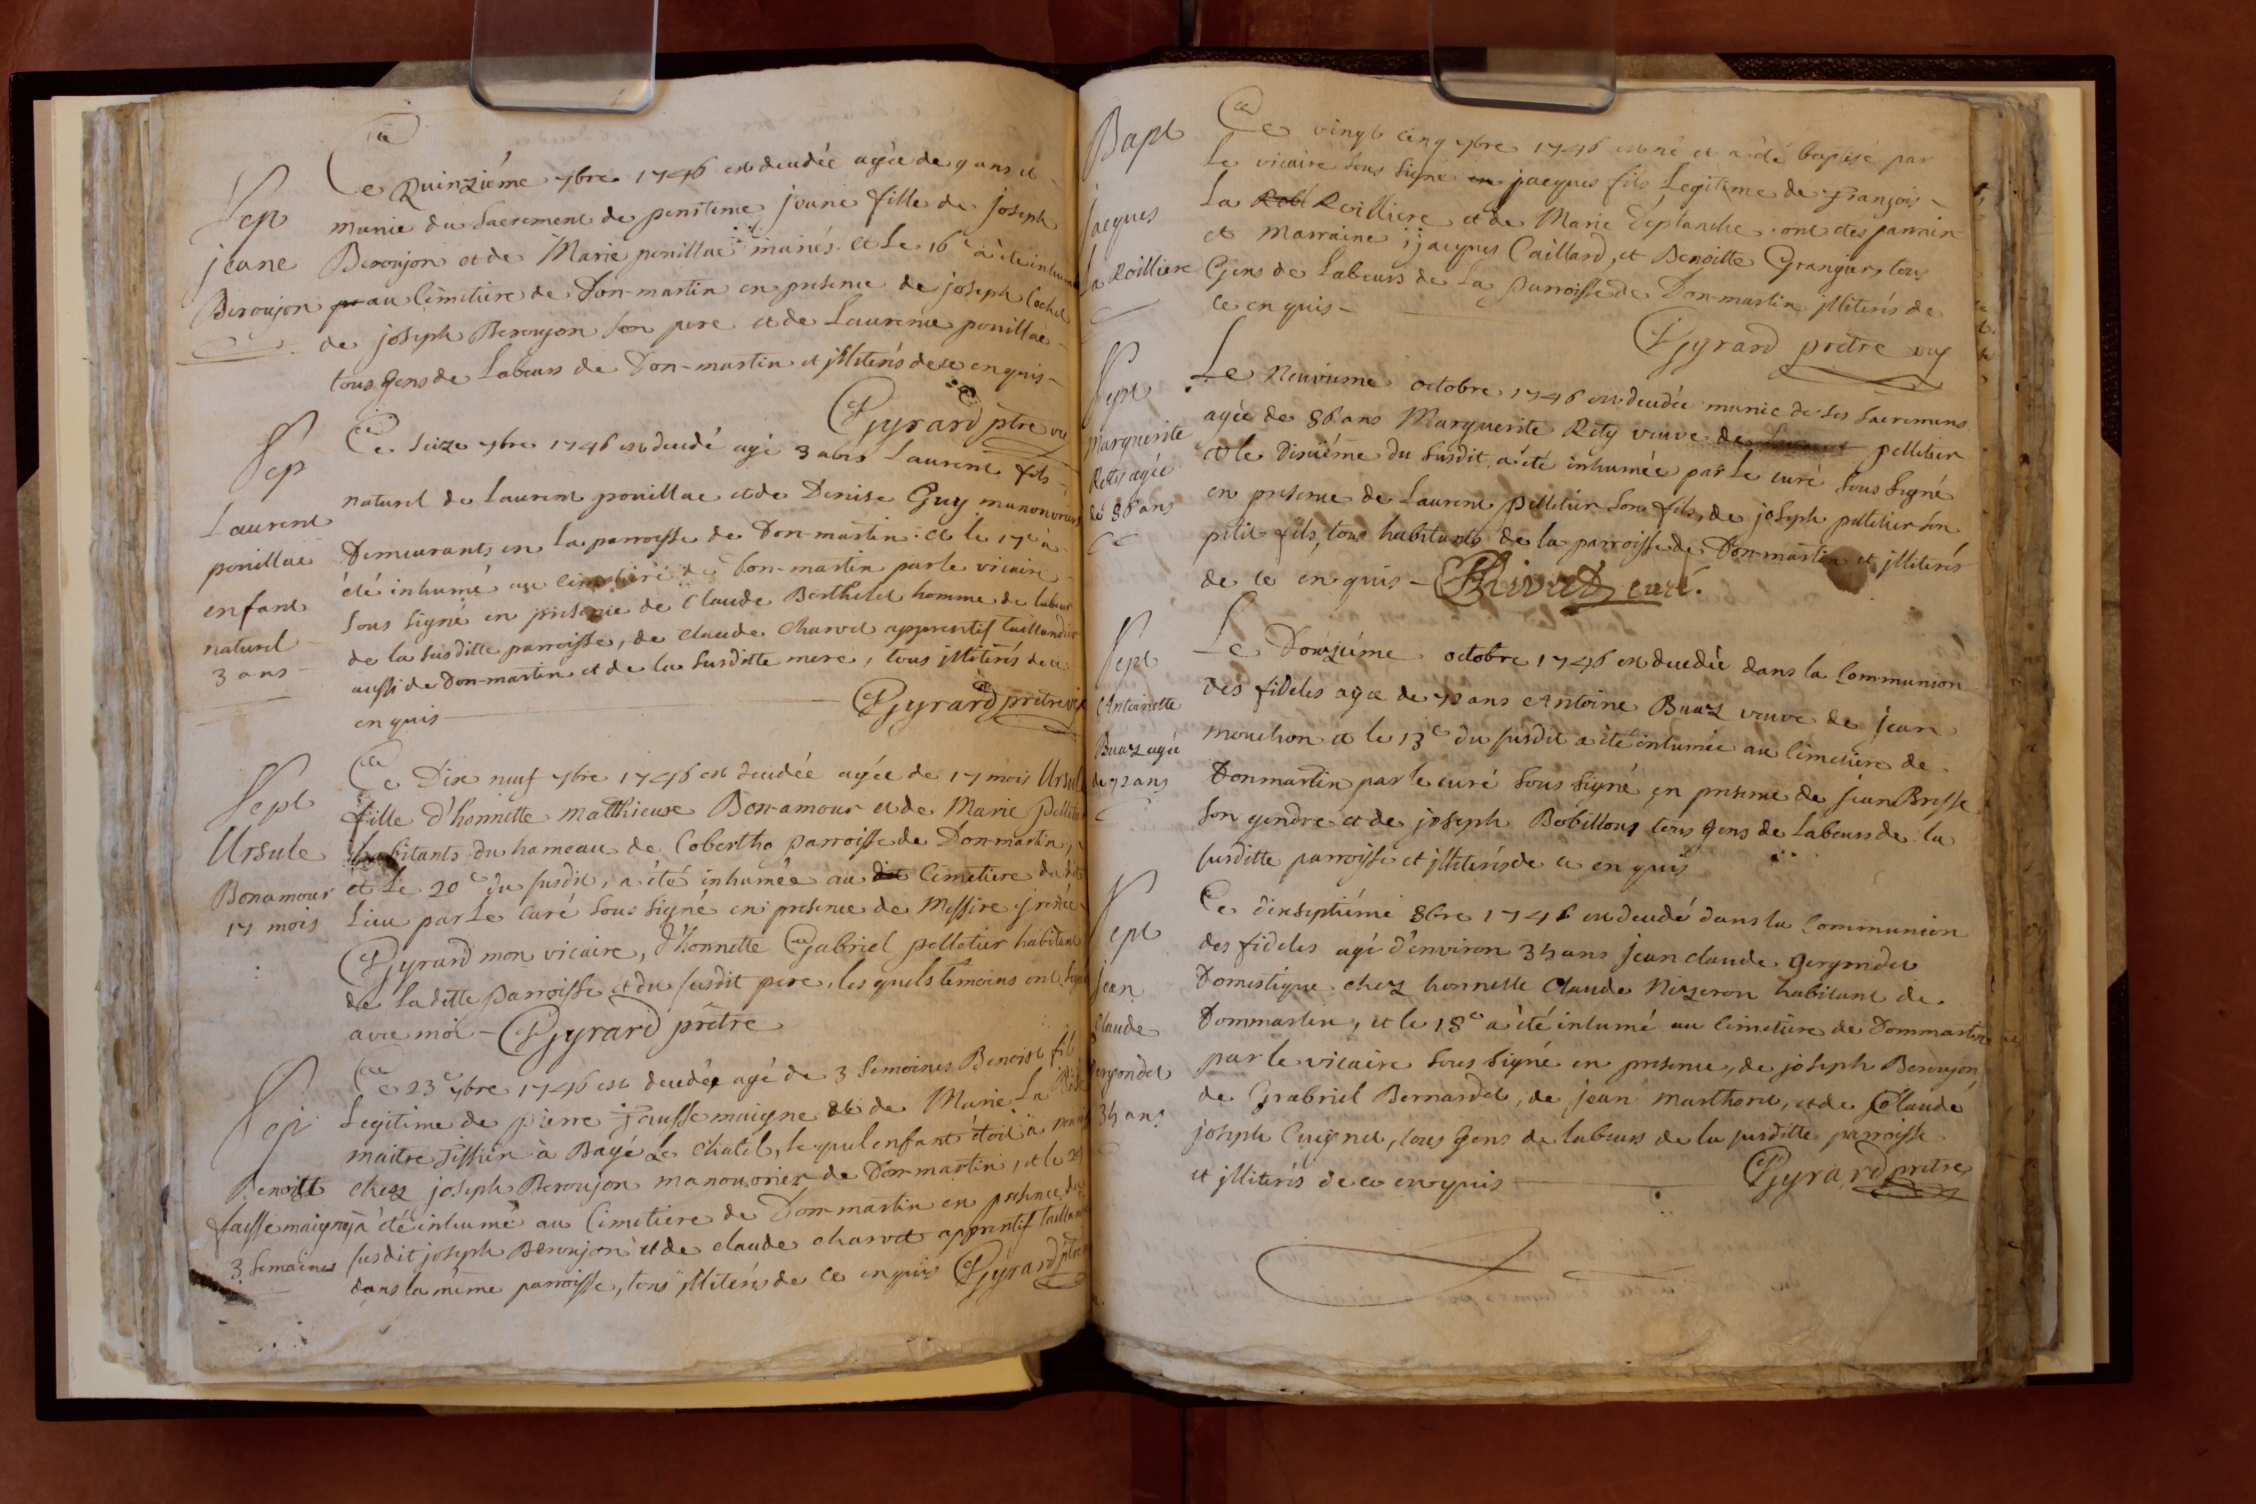 Sep
jeane
Beroujon
Ce Quinziéme 7bre 1746 est decedée agée de 9 ans et
munie du Sacrement de penitence jeune fille de joseph
Beroujon et de Marie ponillac mariés. et Le 16e à été inhumé
au Cimetiere de Don-martin en presence de joseph Cochet
de joseph Beroujon son pere et de Laurence ponillac
tous gens de Labeurs de Don-martin et jlliterés de ce enquis
Gyrard ptre vic
Sep
Laurent
ponillac
enfant
naturel
3 ans
Ce Seize 7bre 1746 est decedé agé 3 abns Laurent fils
naturel de Laurent ponillac et de Denise Guy manonvriers
Demeurants en La parroisse de Don-martin. et le 17e à
été inhumé au Cimetiere de Don-martin par le vicaire
sous signé en presence de Claude Berthelet homme de labeur
de la susditte parroisse, de claude charvet apprentif taillandier
aussi de Don-martin et de la susditte mere, tous jlliterés de ce
enquis
Gyrard prêtre vic
Sept
Ursule
Bonamour
17 mois
Ce Dix neuf 7bre 1746 est decedée agée de 17 mois Ursule
fille d'honnette Matthieux Bon-amour et de Marie Pelletier
habitants du hameau de Cobertho parroisse de Don-martin,
et le 20e du susdit, a été inhumée au Cimetiere du dit
Lieu par Le Curé Sous Signé en presence de Messire jrenée
Gyrard mon vicaire, d'honnette Gabriel pelletier habitant
de La ditte parroisse et du susdit pere, les quels temoins ont signé
avec moi - Gyrard prêtre
Sep
Benoitt
fausse maigne
3 Semaines
Ce 23e 7bre 1746 est decedée agé de 3 Semaines Benoist fils
Legitime de pierre Fausse maigne et de Marie La
maitre Tissier à Bagé Le Chatel, le quel enfant étoit à
chez joseph Beroujon manouvrier de Don-martin, et le
à été inhumé au Cimetiere de Don-martin en presence du
susdit joseph Beroujon et de claude charvet apprentif taillandier
dans la même parroisse, tous jlliterés de ce enquis Gyrard ptre
Bapt
jacques
La Roilliere
Ce vingt cinq 7bre 1746 est né et a été baptisé par
Le vicaire sous signé jacques fils Legitime de François
La Roilliere et de Marie Déplanche. ont étés parrin
et marraine; jacques Caillard, et Benoitte Grangier, tous
Gens de Labeurs de La parroisse de Don-martin jlliterés de
ce enquis
Gyrard prêtre vic
Sept
Marguerite
Rety agée
de 86 ans
Le Neuvieme octobre 1746 est decedée munie de ses sacremens
agée de 86 ans Marguerite Rety veuve de pelletier
et le Dixiéme du susdit a été inhumée par Le curé sous signé
en presence de Laurent pelletier son fils, de joseph pelletier son
petit fils, tous habitants de la parroisse de Don-martin et jlliterés
de ce enquis - Rivet curé.
Sept
Antoinette
Buaz agée
de 72 ans
Le Douziéme octobre 1746 est decedée dans la Communion
des fideles agée de 72 ans Antoine Buaz veuve de jean
mouchon et le 13e du susdit a été inhumée au Cimetiere de
Donmartin par le curé sous signé en presence de jean Bresse
son gendre et de joseph Bobillon, tous gens de Labeurs de la
susditte parroisse et jlliterés de ce enquis
Sept
jean
Claude
Gergondet
35 ans
Ce dixseptiéme 8bre 1746 est decedé dans la Communion
des fideles agé d'environ 35 ans jean claude Gergondet
Domestique chez honnette Claude Nizeron habitant de
Dommartin, et le 18e a été inhumé au Cimetiere de Dommartin
par le vicaire sous signé en presence, de joseph Beroujon
de Gabriel Bernardet, de jean Marthoret, et de Claude
joseph Cuignet, tous gens de labeurs de la susditte parroisse
et jlliterés de ce enquis
Gyrard prêtre